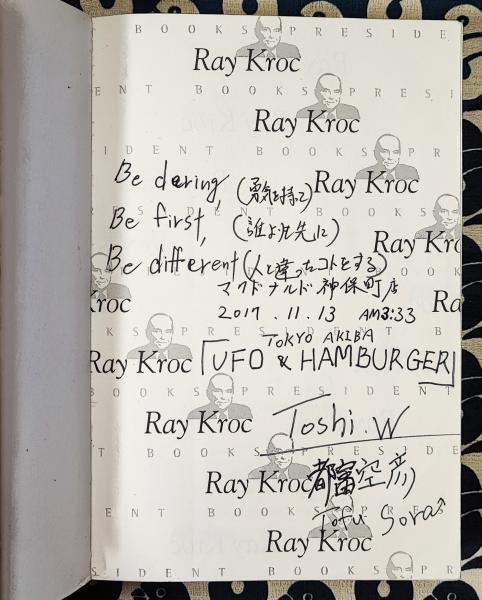 BOOKS PRESIDE
Ray Kroc
ENT BOOKS PRESI
Ray Kroc
SIDENT BOOKS
Be dering, (勇気を持って) Ray Kroc
Be first, (誰よりも先に)
Ray Kroc
Be different (人と違ったコトをする)
マクドナルド神保町店
Kroc
2017.11.13 AM3:33
Ra
PRESIDENT B
TOKYO AKIBA
Ray Kroc
「UFO & HAMBURGER」
BOOKS PRESIDENT
Ray Kroc
Toshi.W
Ray Kroc
都富空彦
DENT BOOKS PRE
Tofu Sora
Ray Kroc
SIDENT BOOKS PR